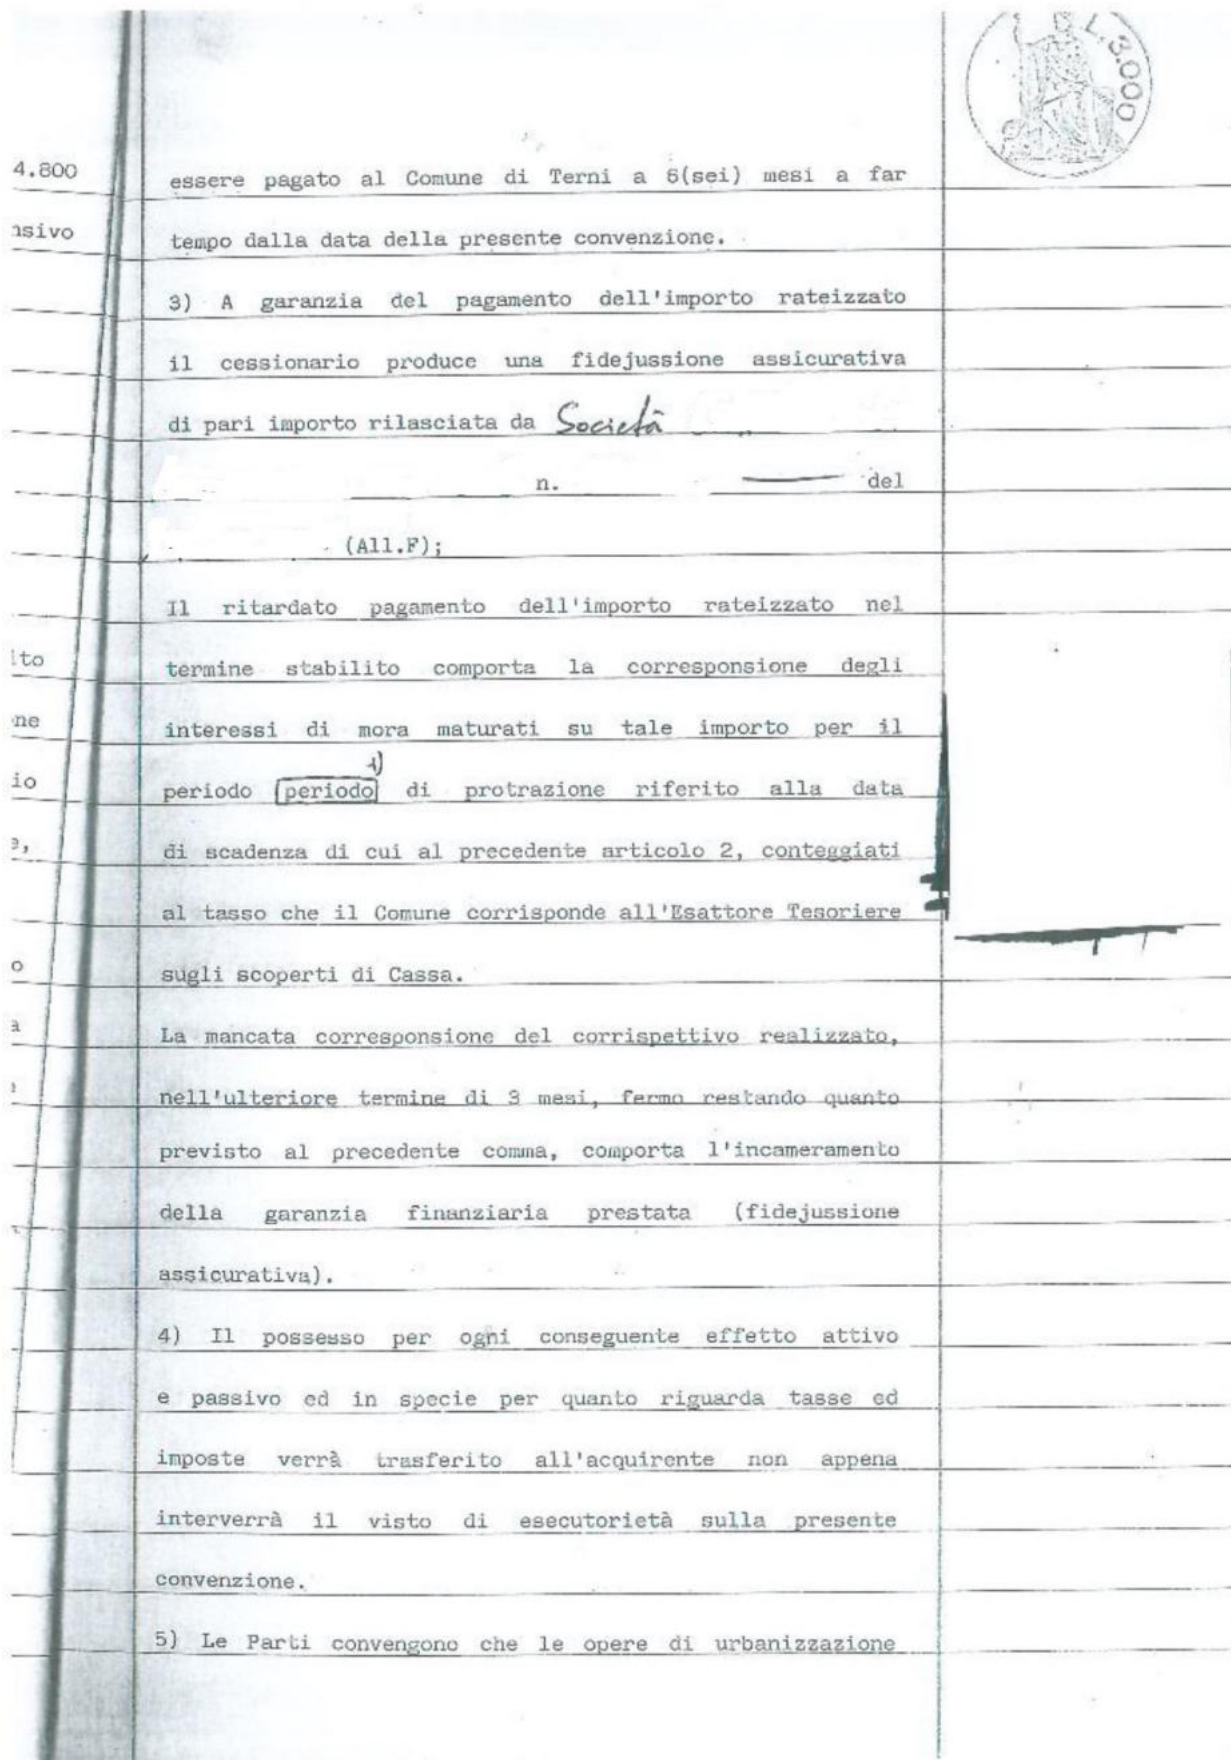 L.3.000
4.800
essere pagato al Comune di Terni a 6(sei) mesi a far
nsivo
tempo dalla data della presente convenzione.
3) A garanzia del pagamento dell'importo rateizzato
il cessionario produce una fidejussione assicurativa
di pari importo rilasciata da Società
n. del
(All.F);
Il ritardato pagamento dell'importo rateizzato nel
ito
termine stabilito comporta la corresponsione degli
ne
interessi di mora maturati su tale importo per il
1)
io
periodo periodo di protrazione riferito alla data
e,
di scadenza di cui al precedente articolo 2, conteggiati
al tasso che il Comune corrisponde all'Esattore Tesoriere
o
sugli scoperti di Cassa.
a
La mancata corresponsione del corrispettivo realizzato,
nell'ulteriore termine di 3 mesi, fermo restando quanto
previsto al precedente comma, comporta l'incameramento
della garanzia finanziaria prestata (fidejussione
assicurativa).
4) Il possesso per ogni conseguente effetto attivo
e passivo ed in specie per quanto riguarda tasse ed
imposte verrà trasferito all'acquirente non appena
interverrà il visto di esecutorietà sulla presente
convenzione.
5) Le Parti convengono che le opere di urbanizzazione